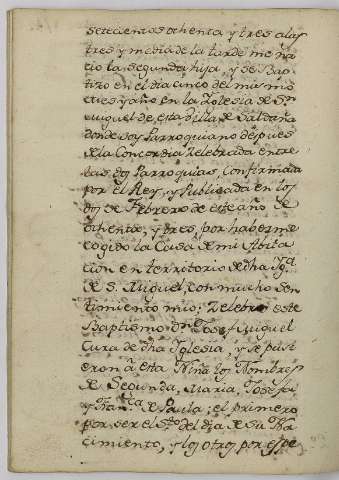 setecientos ochenta y tres a las
tres y media de la tarde me na
cio la segunda hija, y se Bap
tizo en el dia cinco del mismo
mes y año en la Yglesia de Sn.
Miguel de esta Villa de Saldaña
donde soy Parroquiano despues
de la Concordia Zelebrada entre
las dos Parroquias, Confirmada
por el Rey, y Publicada en los
dos de Febrero de este año de
ochenta, y tres, por haberme
cogido la Casa de mi Abita
cion en territorio de dha Yga.
de S. Miguel, con mucho sen
timiento mio; Zelebro este
Baptismo Dn. Josef Miguel
Cura de dha Iglesia y se pusi
eron à esta Niña los Nombres
de Segunda, Maria, Josefa
y Franca. de Paula; el primero
por ser el Sto. del dia de su Na
cimiento, y los otros por espe